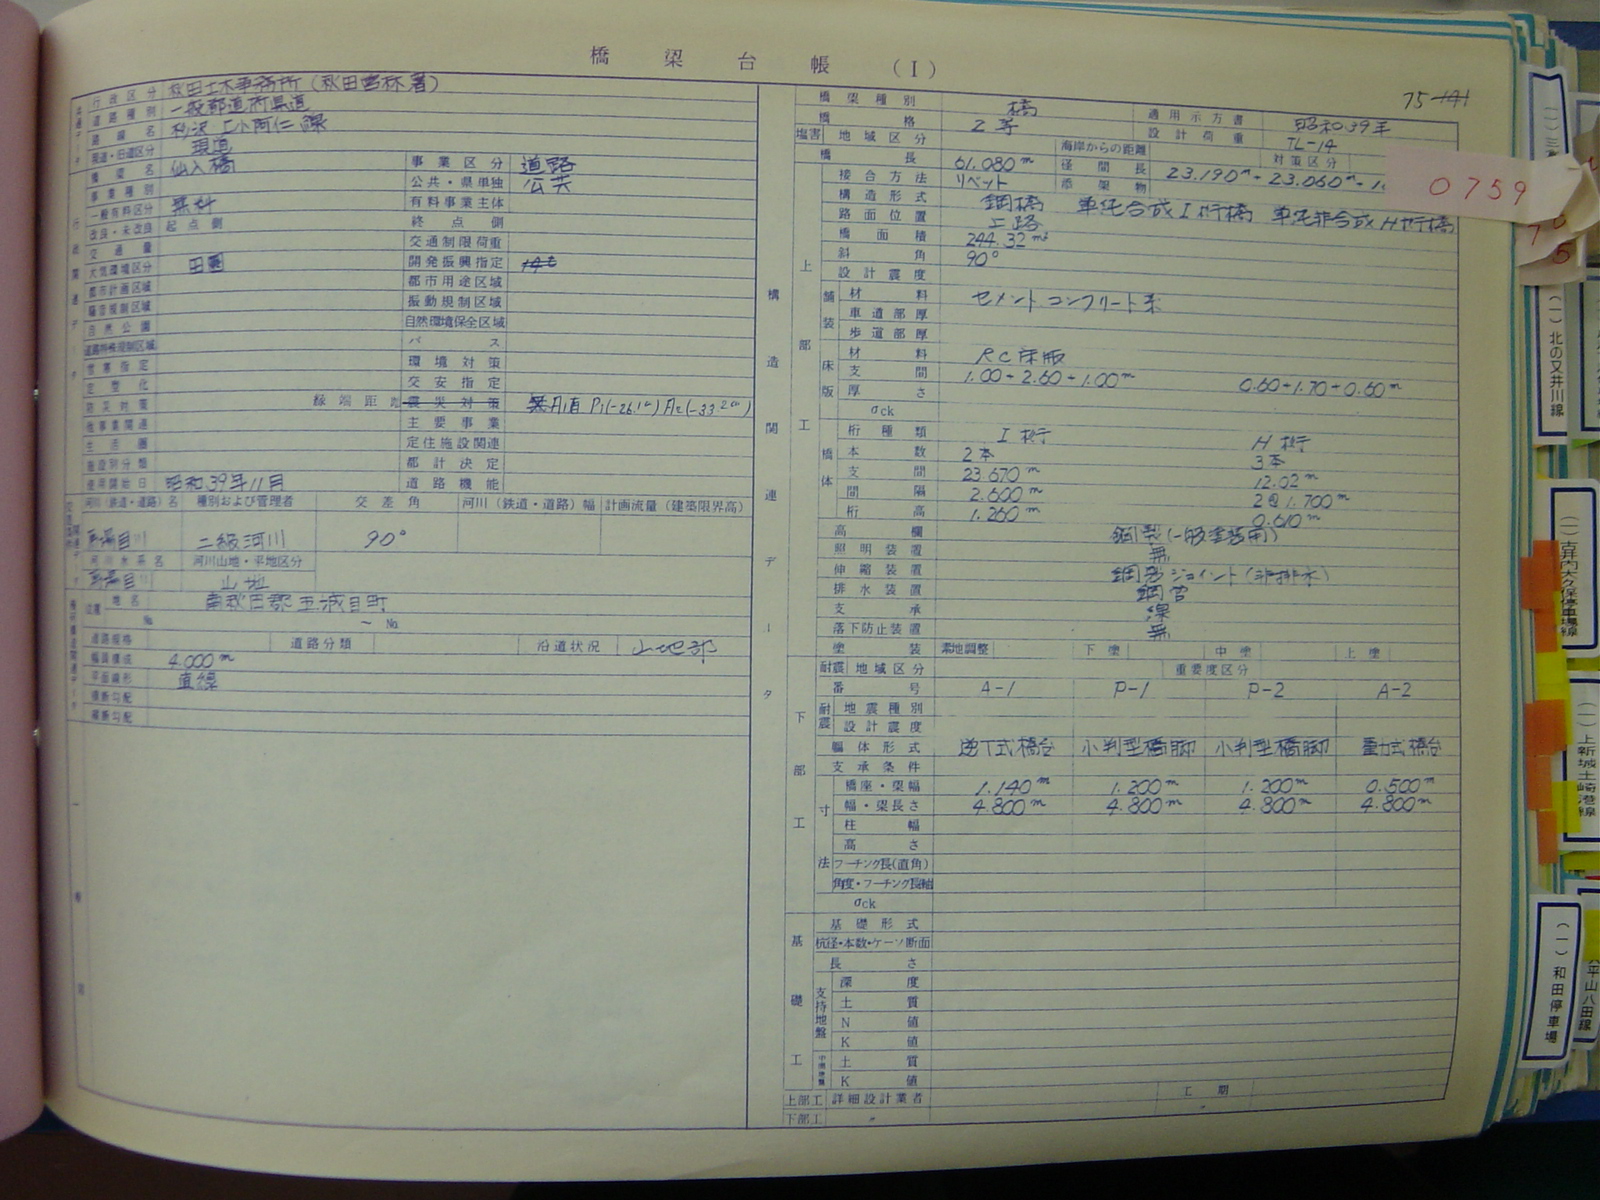 橋梁台帳 (I)
75-141
0759
行政区分 秋田土木事務所(秋田営林署)
道路種別 一般都道府県道
路線名 杉沢上小阿仁線
現道・旧道区分 現道
橋梁名 仙入橋
事業区分 道路
事業種別
公共・県単独 公共
一般有料区分 無料
有料事業主体
改良・未改良 起点側
終点側
交通量
交通制限荷重
大気環境区分 田園
開発振興指定
都市計画区域
都市用途区域
騒音規制区域
振動規制区域
自然公園
自然環境保全区域
バス
環境対策
交安指定
緑端距離 震災対策 A1直 P1(-26.1cm) A2(-33.2cm)
主要事業
生活圏
定住施設関連
施設別分類
都計決定
使用開始日 昭和39年11月
道路機能
河川(鉄道・道路)名 種別および管理者 交差角 河川(鉄道・道路)幅 計画流量(建築限界高)
馬場目川 二級河川 90°
河川水系名 河川山地・平地区分
馬場目川 山地
地名 南秋田郡五城目町
No. 〜 No.
道路規格 道路分類 沿道状況 山地部
幅員構成 4.000m
平面線形 直線
横断勾配
構造関連データ
橋梁種別 橋
橋格 2等
適用示方書 昭和39年
設計荷重 TL-14
塩害 地域区分
海岸からの距離
対策区分
橋長 61.080m
径間長 23.190m+23.060m+1
接合方法 リベット
添架物
構造形式 鋼橋 単純合成I桁橋 単純非合成H桁橋
路面位置 上路
橋面積 244.32m²
斜角 90°
設計震度
上部工
舗装 材料 セメントコンクリート系
車道部厚
歩道部厚
床版 材料 RC床版
支間 1.00+2.60+1.00m 0.60+1.70+0.60m
厚さ
σck
橋体 桁種類 I桁 H桁
本数 2本 3本
支間 23.670m 12.02m
間隔 2.600m 2@1.700m
桁高 1.260m 0.610m
高欄 鋼製(一般塗装用)
照明装置 無
伸縮装置 鋼製ジョイント(非排水)
排水装置 鋼管
支承 線
落下防止装置 無
塗装 素地調整 下塗 中塗 上塗
下部工
耐震 地域区分 重要度区分
番号 A-1 P-1 P-2 A-2
耐震 地震種別
設計震度
躯体形式 逆T式橋台 小判型橋脚 小判型橋脚 重力式橋台
支承条件
寸法 橋座・梁幅 1.140m 1.200m 1.200m 0.500m
幅・梁長さ 4.800m 4.800m 4.800m 4.800m
柱幅
高さ
フーチング長(直角)
角度・フーチング長軸
σck
基礎工
基礎形式
杭径・本数・ケーソン断面
長さ
支持地盤 深度
土質
N値
K値
土質
K値
上部工 詳細設計業者 工期
下部工 〃 〃
(一)北の又井川線
(一)上新城土崎港線
(一)和田停車場
平山八田線